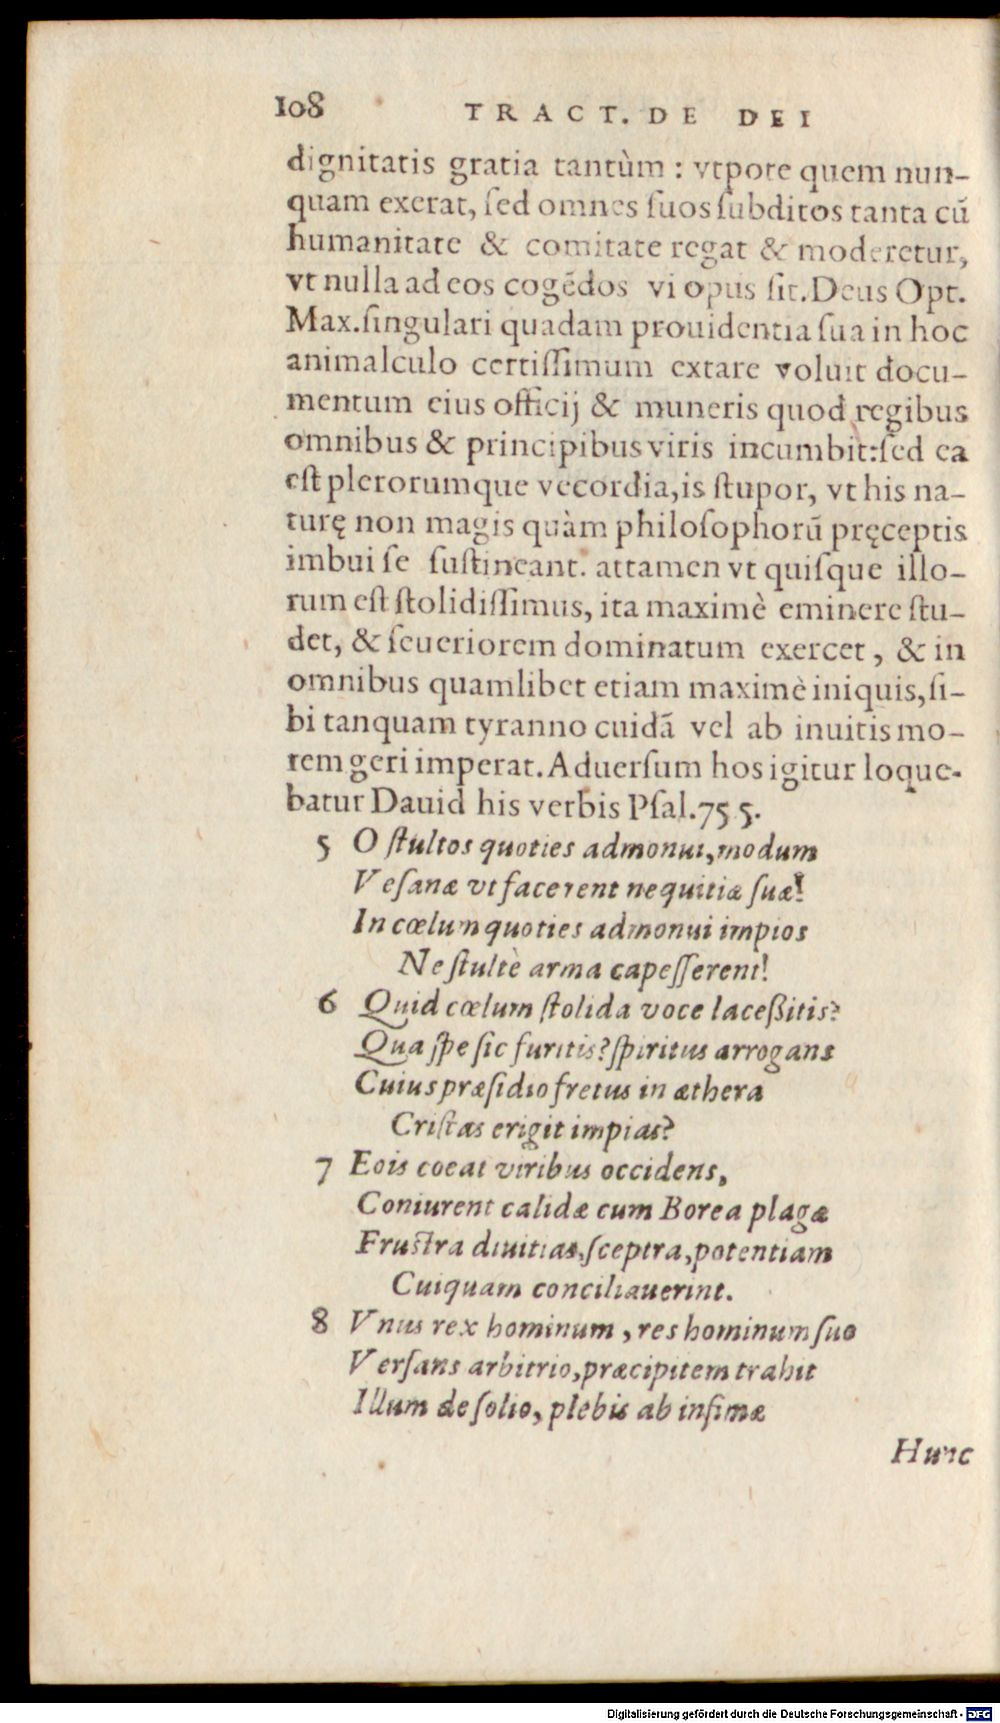 108 TRACT. DE DEI
dignitatis gratia tantùm : vtpote quem nun-
quam exerat, ſed omnes ſuos ſubditos tanta cū
humanitate & comitate regat & moderetur,
vt nulla ad eos cogēdos vi opus ſit. Deus Opt.
Max. ſingulari quadam prouidentia ſua in hoc
animalculo certiſſimum extare voluit docu-
mentum eius officij & muneris quod regibus
omnibus & principibus viris incumbit: ſed ea
eſt plerorumque vecordia, is ſtupor, vt his na-
turę non magis quàm philoſophorū pręceptis
imbui ſe ſuſtineant. attamen vt quiſque illo-
rum eſt ſtolidiſſimus, ita maximè eminere ſtu-
det, & ſeueriorem dominatum exercet, & in
omnibus quamlibet etiam maximè iniquis, ſi-
bi tanquam tyranno cuidā vel ab inuitis mo-
rem geri imperat. Aduerſum hos igitur loque-
batur Dauid his verbis Pſal. 75 5.
5 O ſtultos quoties admonui, modum
Veſanæ vt facerent nequitiæ ſuæ!
In cœlum quoties admonui impios
Ne ſtultè arma capeſſerent!
6 Quid cœlum ſtolida voce laceßitis?
Qua ſpe ſic furitis? ſpiritus arrogans
Cuius præſidio fretus in æthera
Criſtas erigit impias?
7 Eois coeat viribus occidens,
Coniurent calidæ cum Borea plagæ
Fruſtra diuitias, ſceptra, potentiam
Cuiquam conciliauerint.
8 Vnus rex hominum, res hominum ſuo
Verſans arbitrio, præcipitem trahit
Illum de ſolio, plebis ab infimæ
Hunc
Digitalisierung gefördert durch die Deutsche Forschungsgemeinschaft - DFG